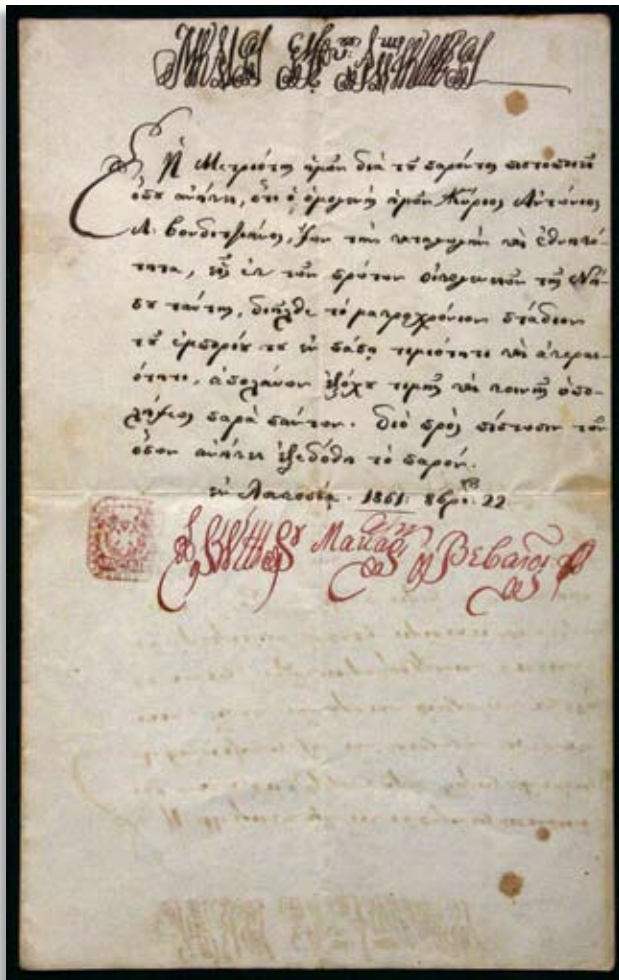 Ἡ Μετριότης ἡμῶν διὰ τοῦ παρόντος πιστοποιεῖ
ὅπου ἀνήκει, ὅτι ὁ ὁμογενὴς ἡμῶν Κύριος Ἀντώνιος
Λ: Βονδιτζιάνος, Ἴων τὴν καταγωγὴν καὶ ἐθνικό-
τητα, εἷς ἐκ τῶν πρώτων τῆς Νή-
σου ταύτης, διῆλθε τὸ μακροχρόνιον στάδιον
τοῦ ἐμπορίου του ἐν πάσῃ τιμιότητι καὶ ἀκεραι-
ότητι, ἀπολαύων ἐξόχου τιμῆς καὶ κοινῆς ὑπο-
λήψεως παρὰ πάντων. διὸ πρὸς πίστωσιν τῶν
ὅπου ἀνήκει ἐξεδόθη τὸ παρόν.
ἐν Λευκοσίᾳ. 1861: 8βρί: 22.
Μακάριος Βεβαιοῖ